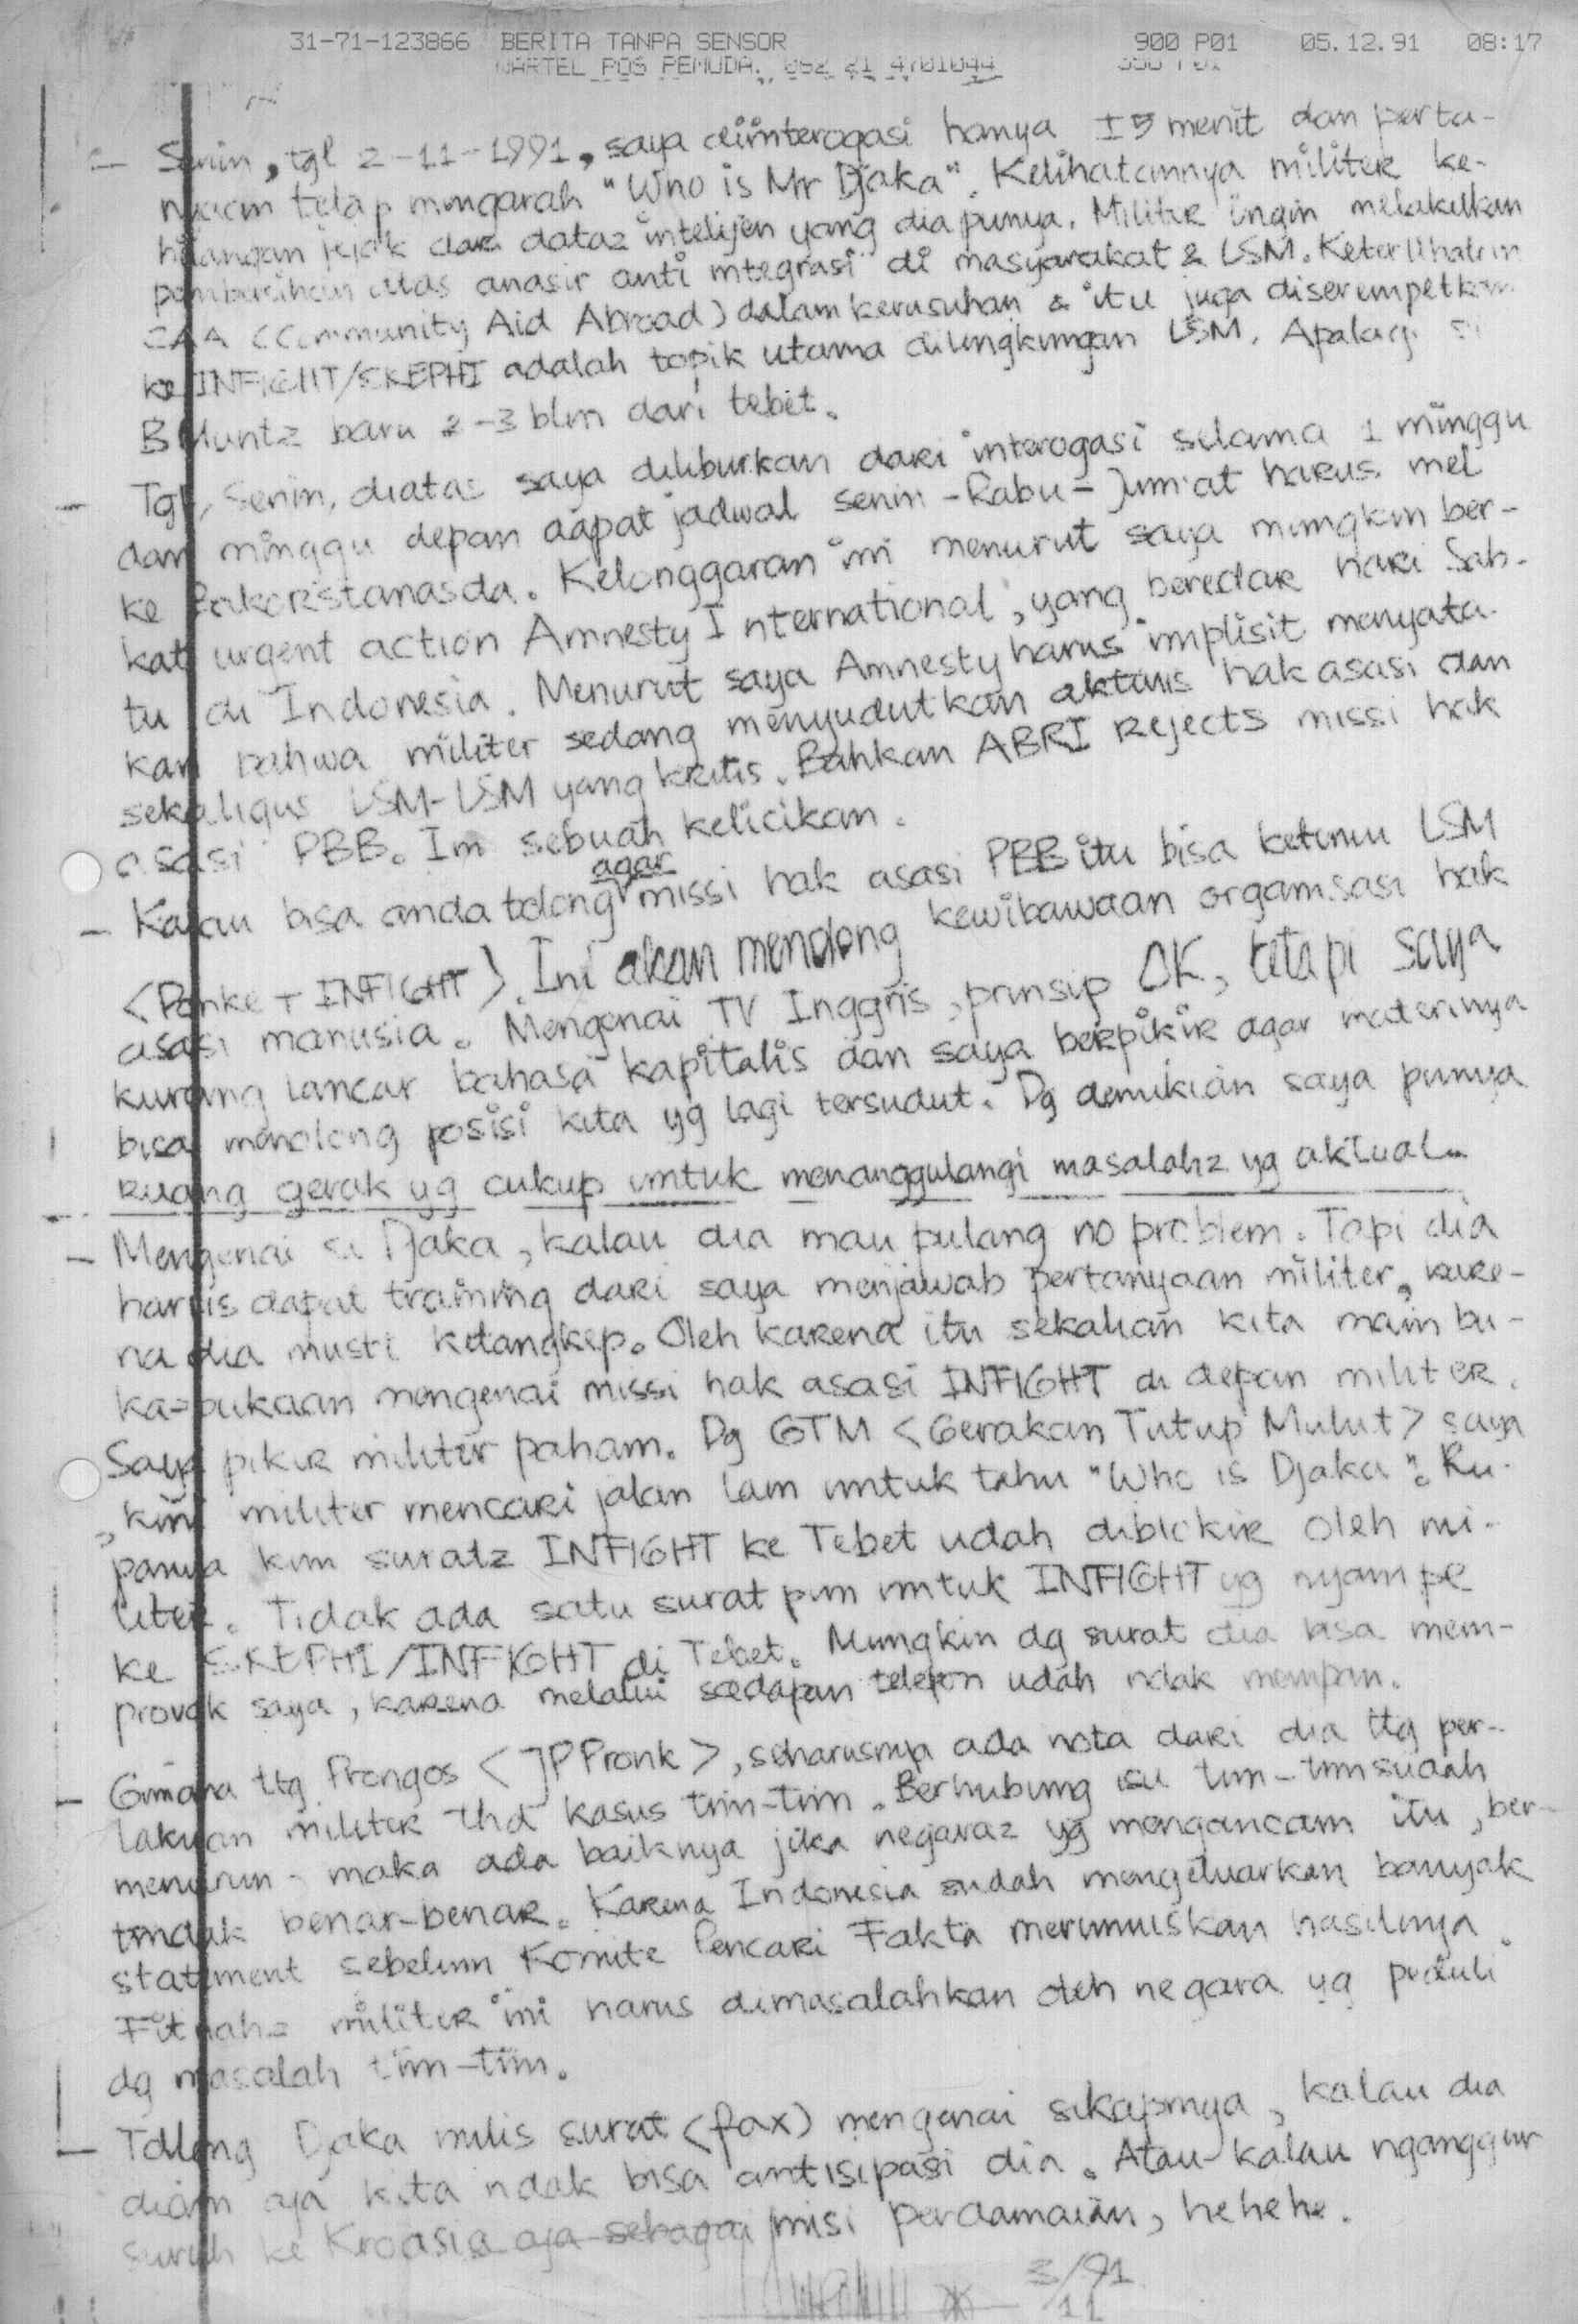 31-71-123866 BERITA TANPA SENSOR 900 P01 05.12.91 08:17
WARTEL POS PEMUDA. 062 21 4701044
- Senin, tgl 2-11-1991, saya diinterogasi hanya 15 menit dan perta-
nyaan tetap mengarah "Who is Mr Djaka". Kelihatannya militer ke-
hilangan jejak dari data2 intelijen yang dia punya. Militer ingin melakukan
pembersihan atas anasir anti integrasi di masyarakat & LSM. Keterlibatan
CAA (Community Aid Abroad) dalam kerusuhan & itu juga diserempetkan
ke INFIGHT/SKEPHI adalah topik utama dilingkungan LSM. Apalagi si
B Muntz baru 2-3 bln dari tebet.
- Tgl, Senin, diatas saya diliburkan dari interogasi selama 1 minggu
dan minggu depan dapat jadwal senin-Rabu-Jum'at harus mel
ke Bakorstanasda. Kelonggaran ini menurut saya mungkin ber-
kat urgent action Amnesty International, yang beredar hari Sab-
tu di Indonesia. Menurut saya Amnesty harus implisit menyata-
kan bahwa militer sedang menyudutkan aktivis hak asasi dan
sekaligus LSM-LSM yang kritis. Bahkan ABRI rejects missi hak
asasi PBB. Ini sebuah kelicikan.
- Kalau bisa anda tolong agar missi hak asasi PBB itu bisa ketemu LSM
<Ponke + INFIGHT>. Ini akan menolong kewibawaan organisasi hak
asasi manusia. Mengenai TV Inggris, prinsip OK, tetapi saya
kurang lancar bahasa kapitalis dan saya berpikir agar materinya
bisa menolong posisi kita yg lagi tersudut. Dg demikian saya punya
ruang gerak yg cukup untuk menanggulangi masalah2 yg aktual.
- Mengenai si Djaka, kalau dia mau pulang no problem. Tapi dia
harus dapat training dari saya menjawab pertanyaan militer, kare-
na dia musti ketangkep. Oleh karena itu sekalian kita main bu-
ka-bukaan mengenai missi hak asasi INFIGHT di depan militer.
Saya pikir militer paham. Dg GTM <Gerakan Tutup Mulut> saya
, kini militer mencari jalan lain untuk tahu "Who is Djaka". Ru-
panya kini surat2 INFIGHT ke Tebet udah diblokir oleh mi-
liter. Tidak ada satu surat pun untuk INFIGHT yg nyampe
ke SKEPHI/INFIGHT di Tebet. Mungkin dg surat dia bisa mem-
provok saya, karena melalui sadapan telepon udah ndak mempan.
- Gimana ttg Prongos <JP Pronk>, seharusnya ada nota dari dia ttg per-
lakuan militer thd kasus tim-tim. Berhubung isu tim-tim sudah
menurun - maka ada baiknya jika negara2 yg mengancam itu, ber-
tindak benar-benar. Karena Indonesia sudah mengeluarkan banyak
statement sebelum Komite Pencari Fakta merumuskan hasilnya.
Fitnah2 militer ini harus dimasalahkan oleh negara yg peduli
dg masalah tim-tim.
- Tolong Djaka nulis surat (fax) mengenai sikapnya, kalau dia
diam aja kita ndak bisa antisipasi dia. Atau kalau nganggur
suruh ke Kroasia aja sebagai misi perdamaian, hehehe.
3/91
11